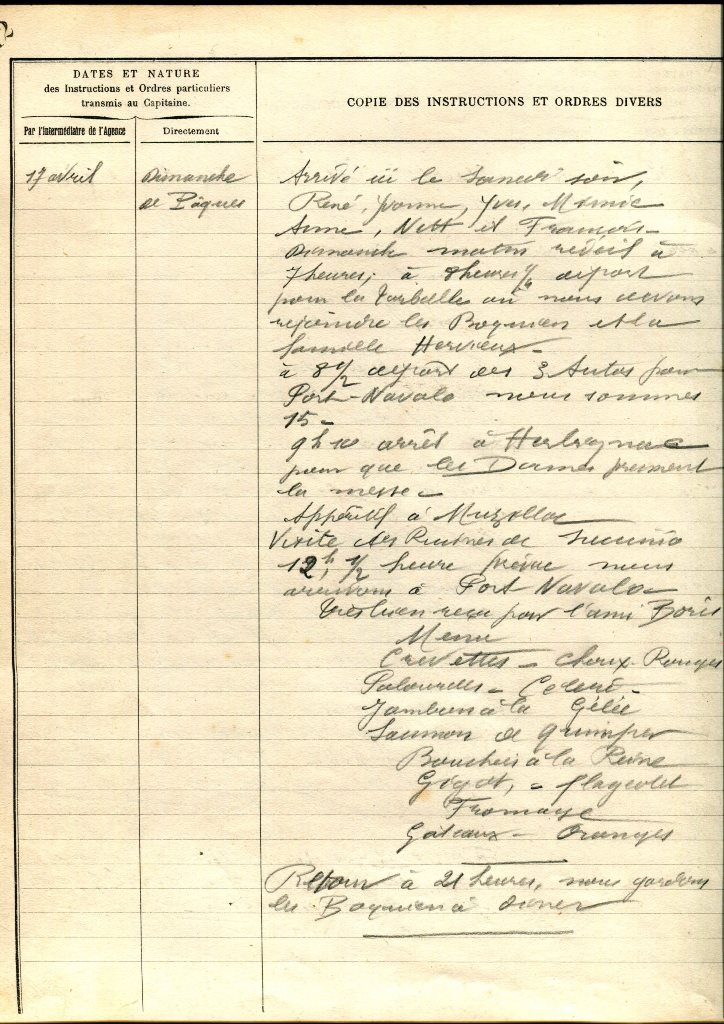 DATES ET NATURE
des Instructions et Ordres particuliers
transmis au Capitaine.
COPIE DES INSTRUCTIONS ET ORDRES DIVERS
Par l'intermédiaire de l'Agence
Directement
17 avril
Dimanche
de Pâques
Arrivé ici le Samedi soir,
René, Yvonne, Yves, Mimie
Anne, Nett et François -
Dimanche matin réveil à
7 heures, à 8 heures 1/4 départ
pour la Turballe où nous devons
rejoindre les Boquien et la
famille Hervieux -
à 8 1/2 départ des 3 Autos pour
Port-Navalo nous sommes
15 -
9h 10 arrêt à Herbignac
pour que les Dames prennent
la messe -
Appéritif à Muzillac
Visite des Ruines de Sucinio
12h 1/2 heure prévue nous
arrivons à Port Navalo -
Très bien reçu par l'ami Boris
Menu
Crevettes - Choux-Rouges
Palourdes - Céleri -
Jambon à la Gélée
Saumon de Quimper
Bouchées à la Reine
Gigot, - flageolet
Fromage
Gâteaux - Oranges
Retour à 21 heures, nous gardons
les Boquien à diner